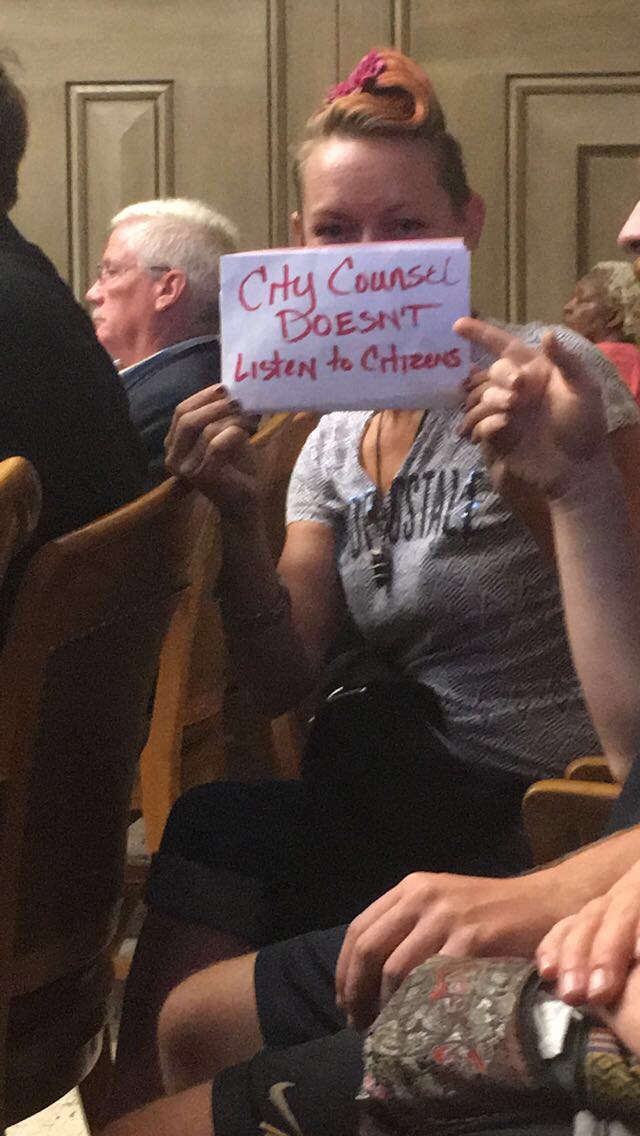 City Counsel
DOESN'T
Listen to Citizens